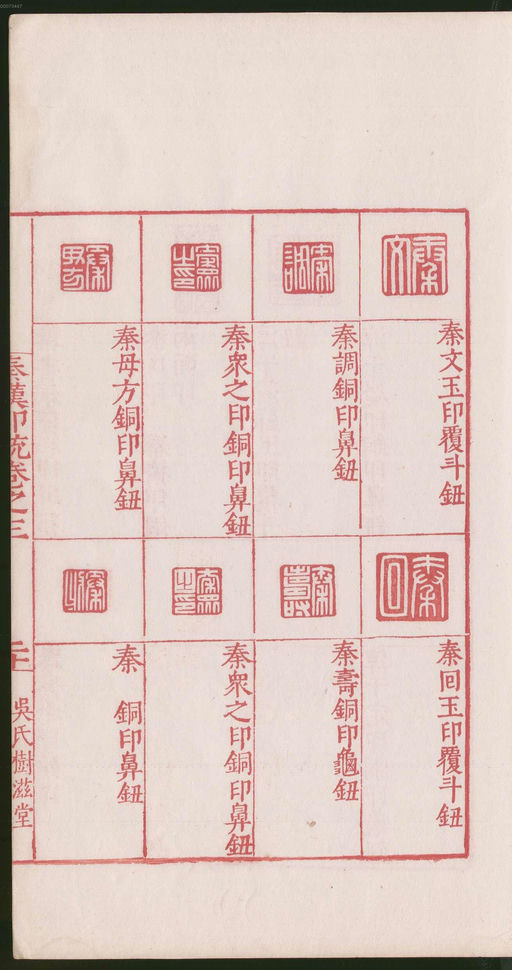 00073447
秦文玉印覆斗鈕
秦調銅印鼻鈕
秦衆之印銅印鼻鈕
秦毋方銅印鼻鈕
秦回玉印覆斗鈕
秦壽銅印龜鈕
秦衆之印銅印鼻鈕
秦 銅印鼻鈕
秦漢印統卷之三
二十
吳氏樹滋堂